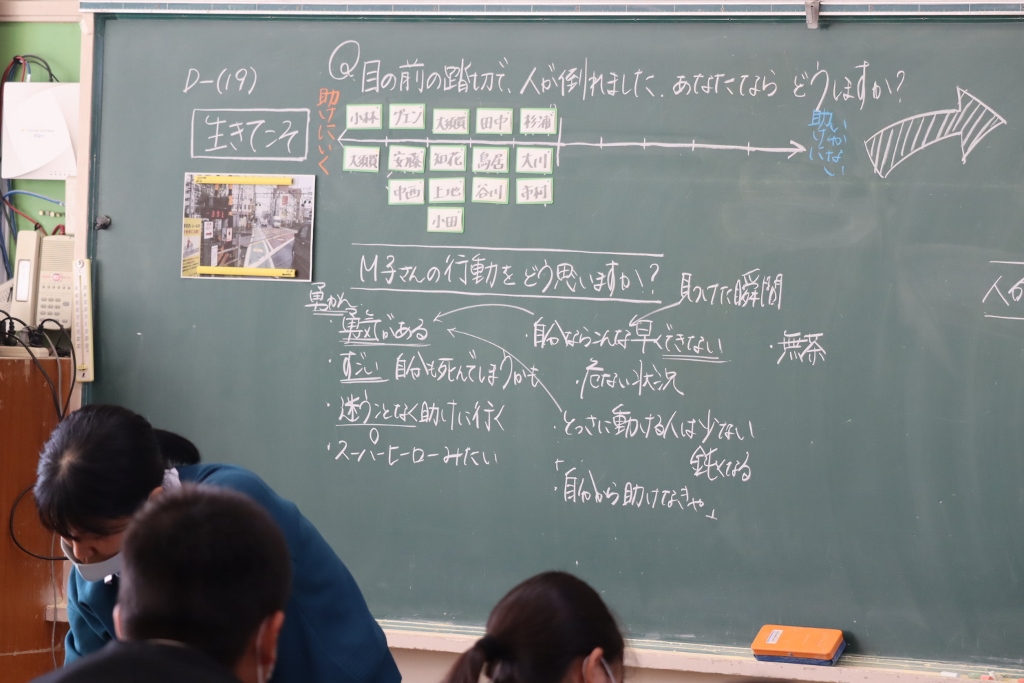 D-(19)
Q 目の前の踏切で、人が倒れました。あなたなら どうしますか?
生きてこそ
助けにいく
小林 グエン 大須賀 田中 杉浦
大須賀 安藤 知花 鳥居 大川
中西 上地 谷川 市村
小田
助けに
いかない
M子さんの行動をどう思いますか?
見つけた瞬間
勇かん
・勇気がある
・すごい 自分も死んでしまうかも
・迷うことなく助けに行く
・スーパーヒーローみたい
・自分ならこんな早くできない
・危ない状況
・とっさに動ける人は少ない
鈍くなる
・「自分から助けなきゃ」
・無茶
人が